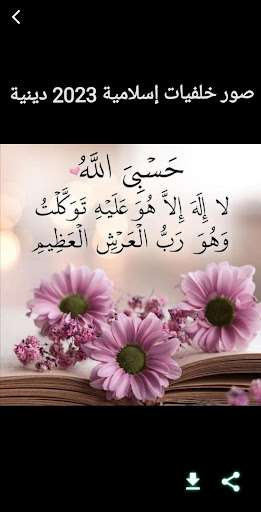 صور خلفيات إسلامية 2023 دينية
حَسْبِيَ اللَّهُ
لا إِلَهَ إِلاَّ هُوَ عَلَيْهِ تَوَكَّلْتُ
وَهُوَ رَبُّ الْعَرْشِ الْعَظِيمِ